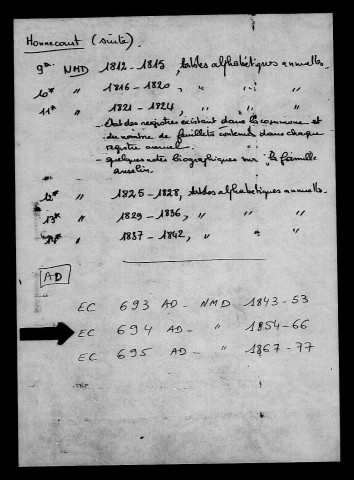 Honnecourt (suite).
9e* NMD 1812-1815, tables alphabétiques annuelles.
10e* " 1816-1820, " " "
11e* " 1821-1824, " " "
- Etat des registres existant dans la commune et
du nombre de feuillets contenus dans chaque
registre annuel.
- quelques notes biographiques sur la famille
Anselin.
12e* " 1825-1828, tables alphabétiques annuelles.
13e* " 1829-1836, " " "
14e* " 1837-1842, " " "
AD
EC 693 AD - NMD 1843-53
EC 694 AD - " 1854-66
EC 695 AD - " 1867-77